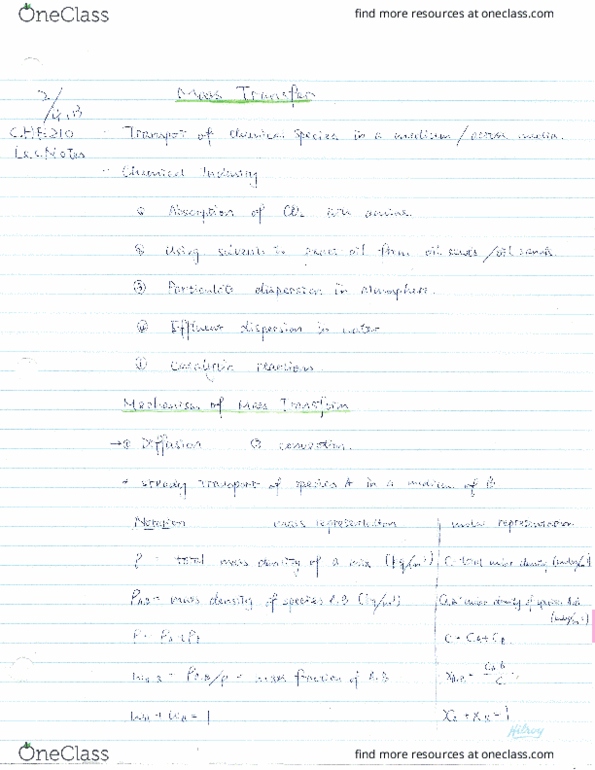 OneClass
find more resources at oneclass.com
Mass Transfer
CHE210
Lec. Notes
- Transport of chemical species in a medium / across media.
- Chemical Industry
Absorption of CO2 with amine.
Using solvents to oil from oil sands / oil sands.
③ Particulate dispersion in atmosphere.
④ Effluent dispersion in water
Catalytic reactions.
Mechanism of Mass Transfer
→① Diffusion ② convection.
steady transport of species A in a medium of B
Notation mass representation molar representation
ρ = total mass density of a mix (kg/m³) C = total molar density
ρA,B = mass density of species A,B (kg/m³) molar density of species A,B
ρ = ρA + ρB C = CA + CB
wA,B = ρA,B/ρ = mass fraction of A,B xA,B = CA,B/C
wA + wB = 1 xA + xB = 1
Hilroy
OneClass
find more resources at oneclass.com